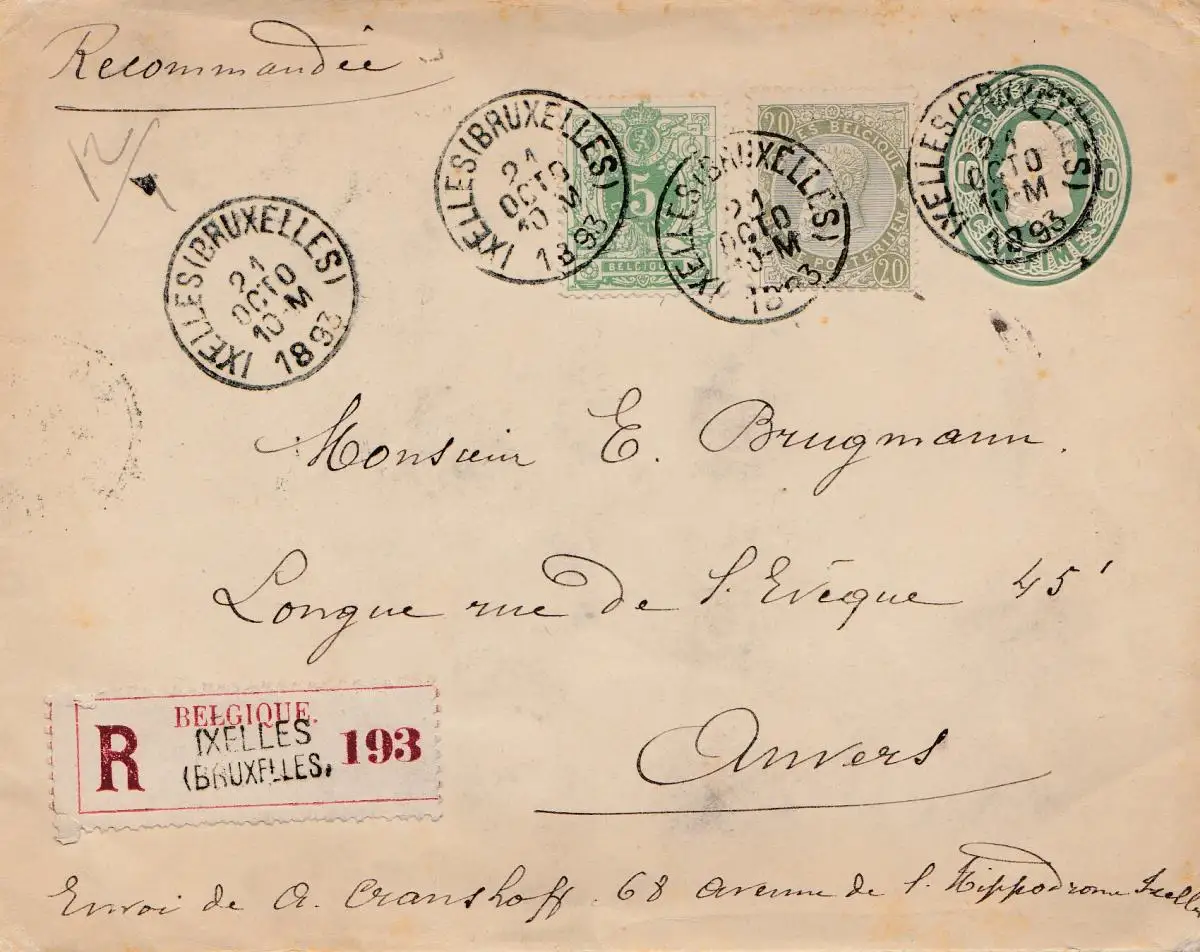 Recommandée
IXELLES (BRUXELLES)
21
OCTO
10-M
1893
5
BELGIQUE
IXELLES (BRUXELLES)
21
OCTO
10-M
1893
20
ES BELGIQUE
POSTERIJEN
20
IXELLES (BRUXELLES)
21
OCTO
10-M
1893
10
10
IXELLES (BRUXELLES)
21
OCTO
10-M
1893
Monsieur E. Brugmann.
Longue rue de l'Evêque 45'
Anvers
BELGIQUE.
R IXELLES 193
(BRUXELLES)
Envoi de A. Cranshoff. 68 avenue de l'Hippodrome Ixelles